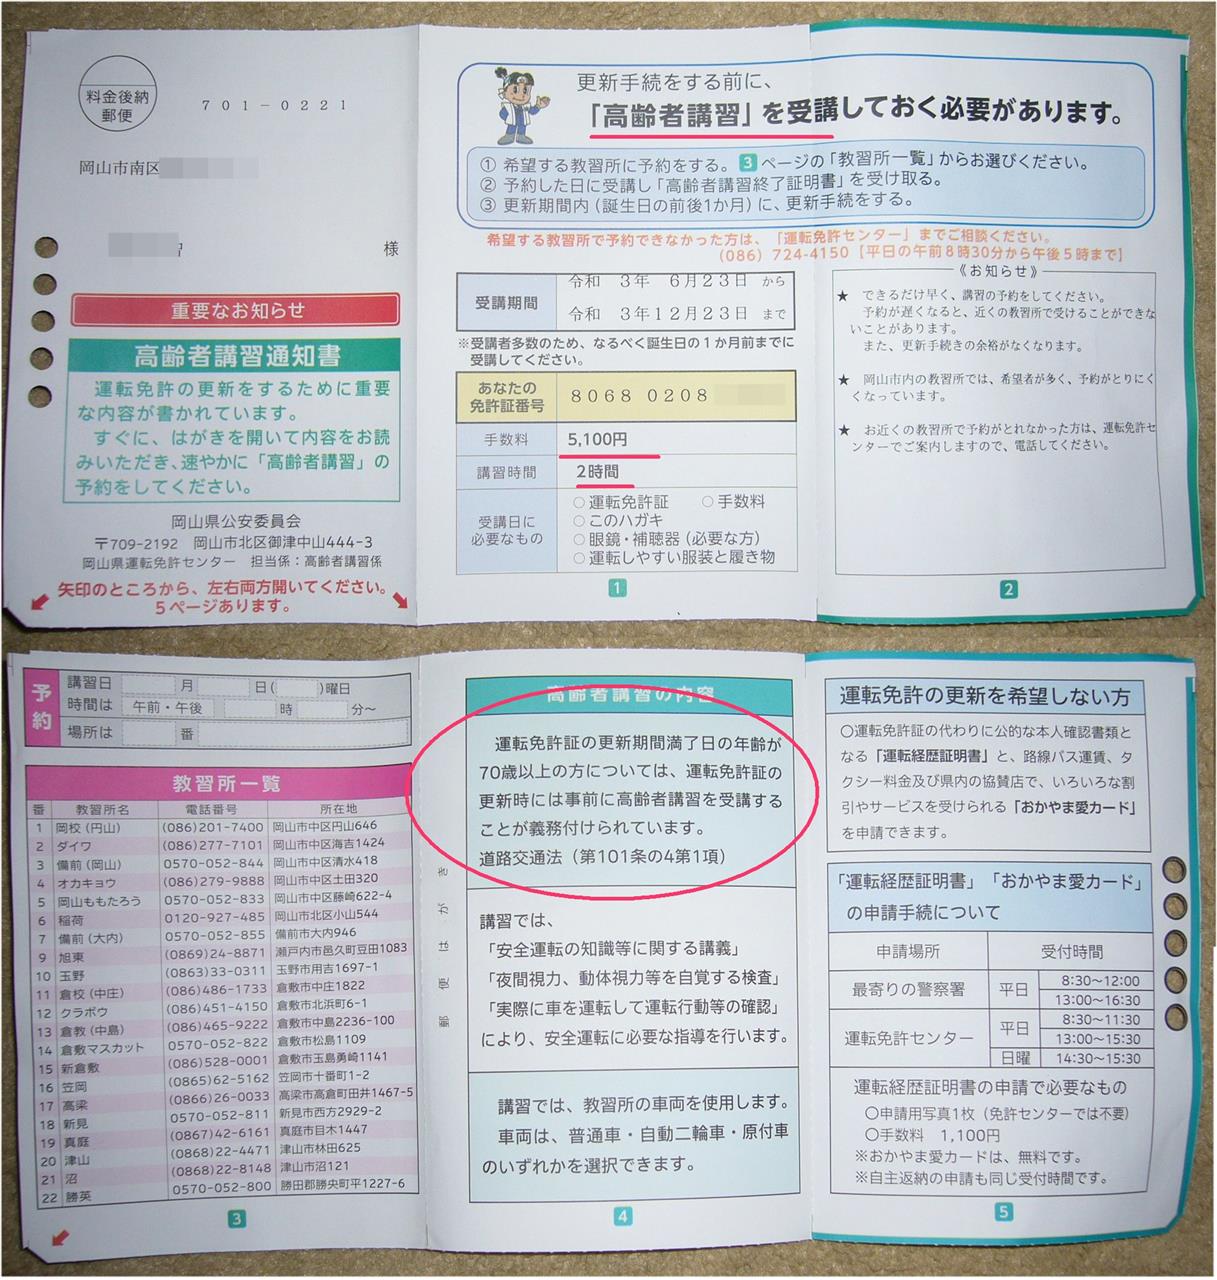 料金後納
郵便
701-0221
岡山市南区
様
重要なお知らせ
高齢者講習通知書
運転免許の更新をするために重要
な内容が書かれています。
すぐに、はがきを開いて内容をお読
みいただき、速やかに「高齢者講習」の
予約をしてください。
岡山県公安委員会
〒709-2192 岡山市北区御津中山444-3
岡山県運転免許センター 担当係:高齢者講習係
矢印のところから、左右両方開いてください。
5ページあります。
更新手続をする前に、
「高齢者講習」を受講しておく必要があります。
① 希望する教習所に予約をする。3ページの「教習所一覧」からお選びください。
② 予約した日に受講し「高齢者講習終了証明書」を受け取る。
③ 更新期間内(誕生日の前後1か月)に、更新手続をする。
希望する教習所で予約できなかった方は、「運転免許センター」までご相談ください。
(086)724-4150【平日の午前8時30分から午後5時まで】
受講期間
令和 3年 6月23日 から
令和 3年12月23日 まで
※受講者多数のため、なるべく誕生日の1か月前までに
受講してください。
あなたの
免許証番号
8068 0208
手数料 5,100円
講習時間 2時間
受講日に
必要なもの
○運転免許証 ○手数料
○このハガキ
○眼鏡・補聴器(必要な方)
○運転しやすい服装と履き物
1
《お知らせ》
★ できるだけ早く、講習の予約をしてください。
予約が遅くなると、近くの教習所で受けることができな
いことがあります。
また、更新手続きの余裕がなくなります。
★ 岡山市内の教習所では、希望者が多く、予約がとりにく
くなっています。
★ お近くの教習所で予約がとれなかった方は、運転免許セ
ンターでご案内しますので、電話してください。
2
予約
講習日 月 日( )曜日
時間は 午前・午後 時 分~
場所は 番
教習所一覧
番 教習所名 電話番号 所在地
1 岡校(円山) (086)201-7400 岡山市中区円山646
2 ダイワ (086)277-7101 岡山市中区海吉1424
3 備前(岡山) 0570-052-844 岡山市中区清水418
4 オカキョウ (086)279-9888 岡山市中区土田320
5 岡山ももたろう 0570-052-833 岡山市中区藤崎622-4
6 稲荷 0120-927-485 岡山市北区小山544
7 備前(大内) 0570-052-855 備前市大内946
9 旭東 (0869)24-8871 瀬戸内市邑久町豆田1083
10 玉野 (0863)33-0311 玉野市用吉1697-1
11 倉校(中庄) (086)486-1733 倉敷市中庄1822
12 クラボウ (086)451-4150 倉敷市北浜町6-1
13 倉教(中島) (086)465-9222 倉敷市中島2236-100
14 倉敷マスカット 0570-052-822 倉敷市松島1109
15 新倉敷 (086)528-0001 倉敷市玉島勇崎1141
16 笠岡 (0865)62-5162 笠岡市十番町1-2
17 高梁 (0866)26-0033 高梁市高倉町田井1467-5
18 新見 0570-052-811 新見市西方2929-2
19 真庭 (0867)42-6161 真庭市目木1447
20 津山 (0868)22-4471 津山市林田625
21 沼 (0868)22-8148 津山市沼121
22 勝英 0570-052-800 勝田郡勝央町平1227-6
3
郵便はがき
高齢者講習の内容
運転免許証の更新期間満了日の年齢が
70歳以上の方については、運転免許証の
更新時には事前に高齢者講習を受講する
ことが義務付けられています。
道路交通法(第101条の4第1項)
講習では、
「安全運転の知識等に関する講義」
「夜間視力、動体視力等を自覚する検査」
「実際に車を運転して運転行動等の確認」
により、安全運転に必要な指導を行います。
講習では、教習所の車両を使用します。
車両は、普通車・自動二輪車・原付車
のいずれかを選択できます。
4
運転免許の更新を希望しない方
○運転免許証の代わりに公的な本人確認書類と
なる「運転経歴証明書」と、路線バス運賃、タ
クシー料金及び県内の協賛店で、いろいろな割
引やサービスを受けられる「おかやま愛カード」
を申請できます。
「運転経歴証明書」「おかやま愛カード」
の申請手続について
申請場所 受付時間
最寄りの警察署 平日 8:30~12:00
13:00~16:30
運転免許センター 平日 8:30~11:30
13:00~15:30
日曜 14:30~15:30
運転経歴証明書の申請で必要なもの
○申請用写真1枚(免許センターでは不要)
○手数料 1,100円
※おかやま愛カードは、無料です。
※自主返納の申請も同じ受付時間です。
5